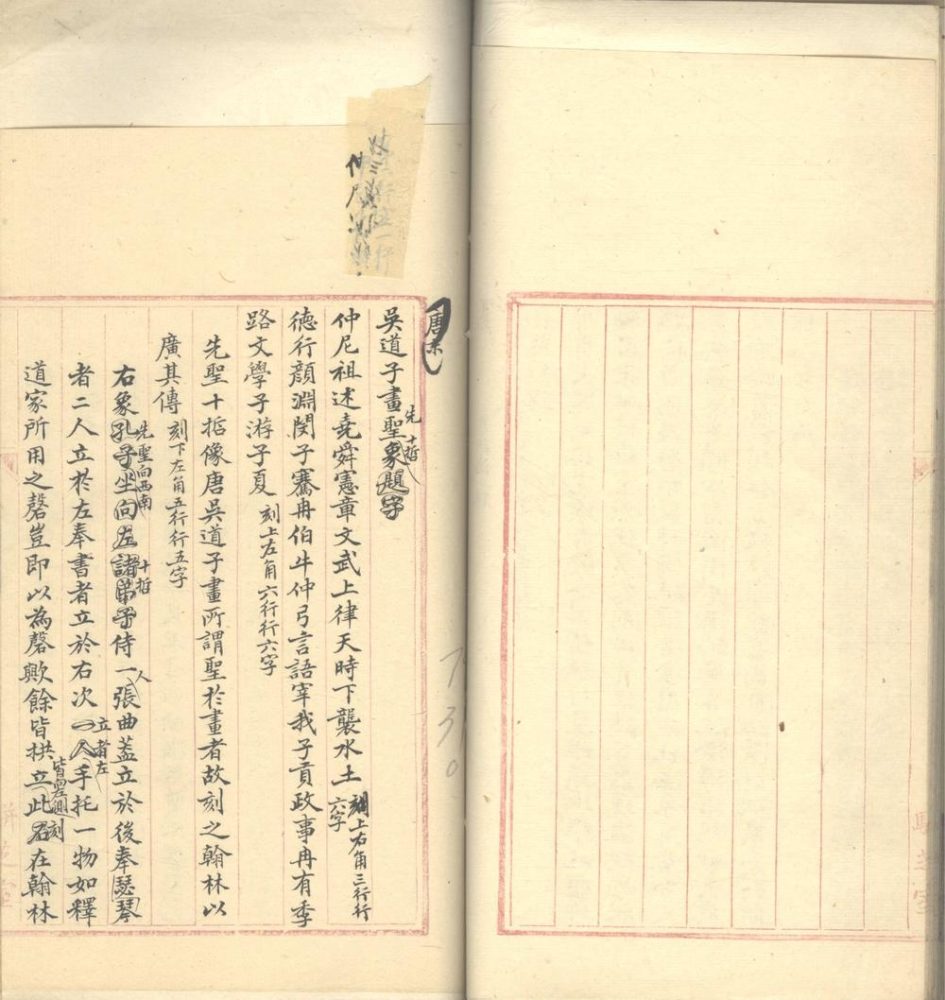 唐末
吳道子畫聖象題字
先十哲
仲尼祖述堯舜憲章文武上律天時下襲水土刻上右角三行行六字
德行顏淵閔子騫冉伯牛仲弓言語宰我子貢政事冉有季
路文學子游子夏刻上左角六行行六字
先聖十哲像唐吳道子畫所謂聖於畫者故刻之翰林以
廣其傳刻下左角五行行五字
右象孔子坐向左諸弟子侍一人張曲蓋立於後奉瑟琴
先聖向西南
十哲
者二人立於左奉書者立於右次一人手托一物如釋
立者左
道家所用之磬豈即以為磬歟餘皆拱立此刻在翰林
仲尼
730